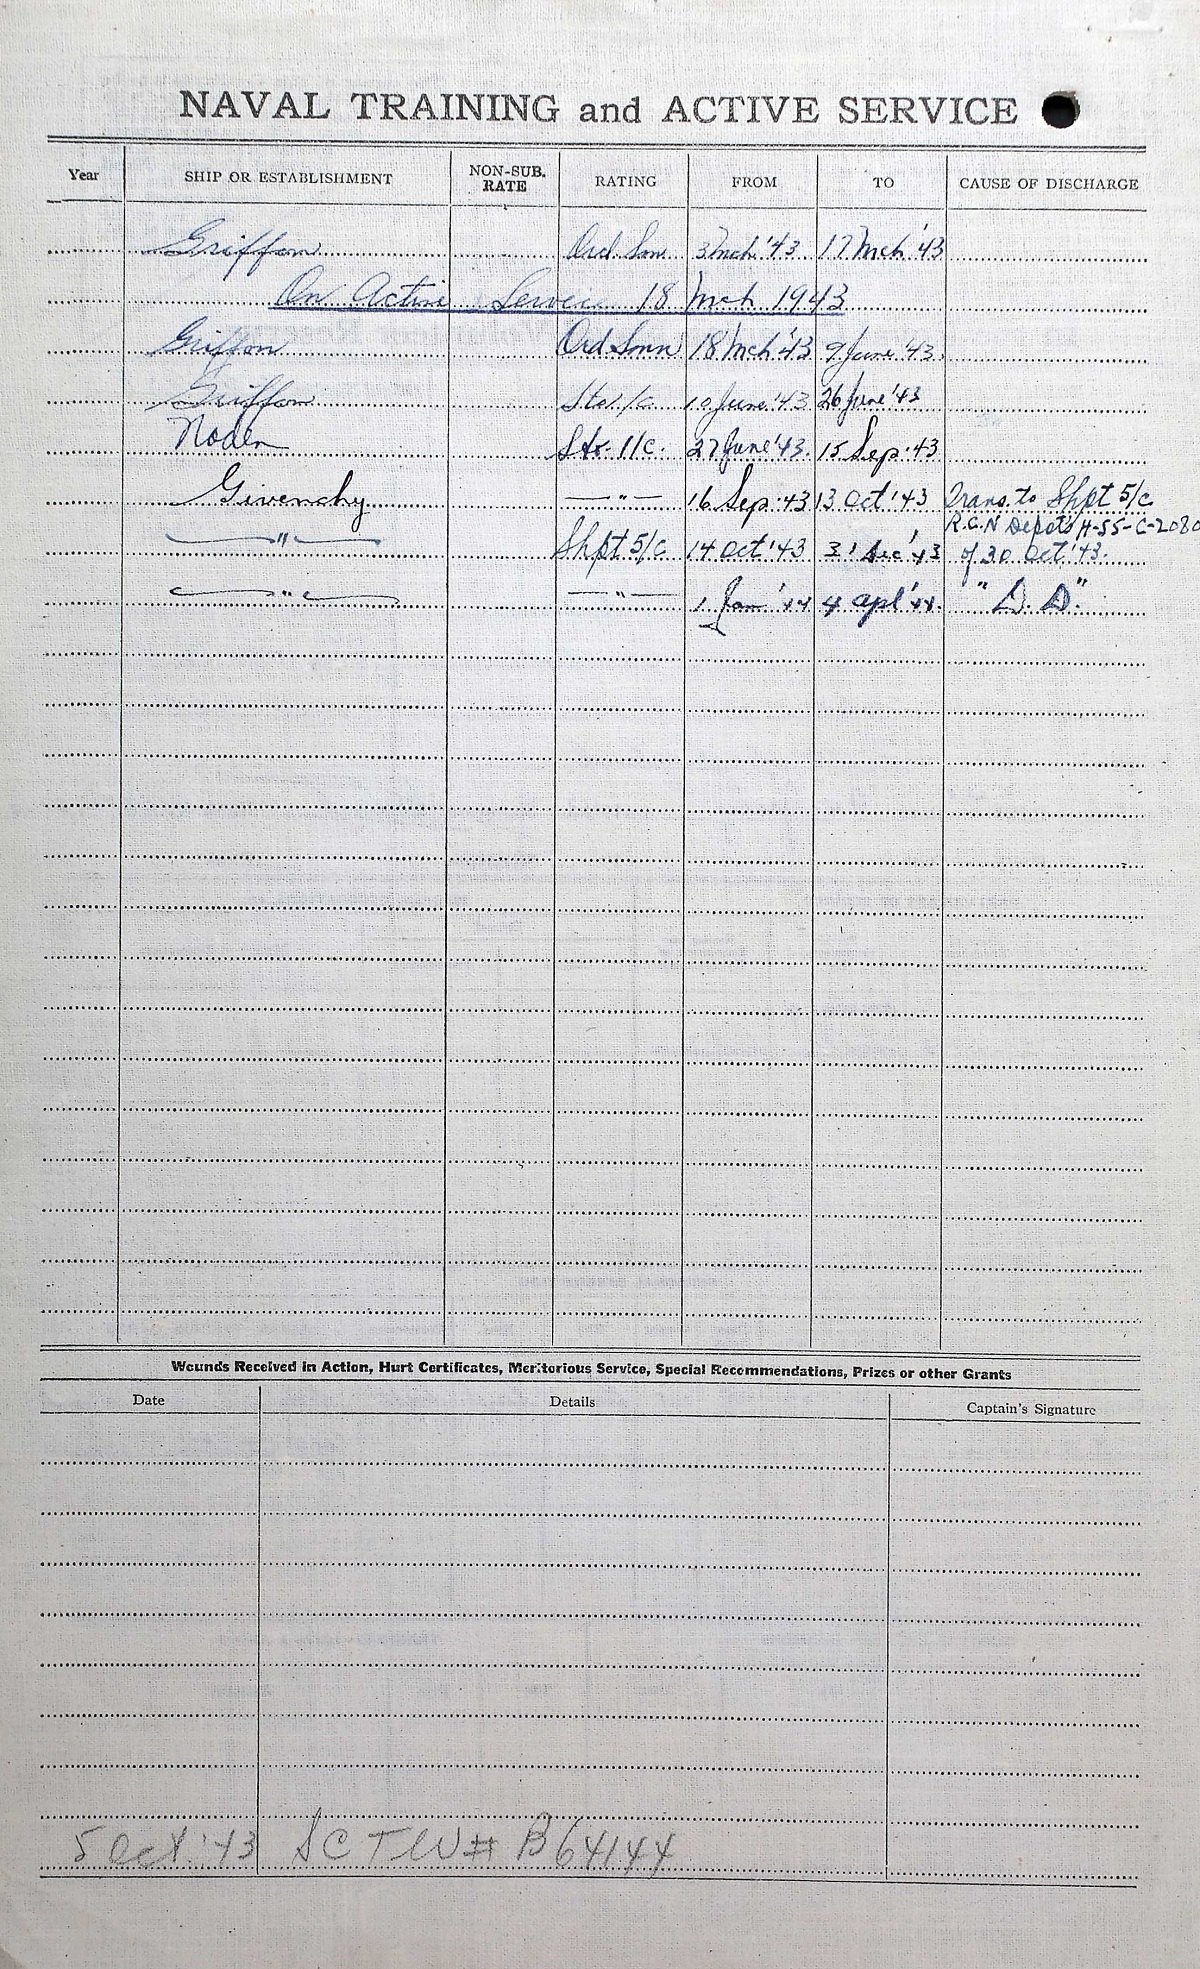 NAVAL TRAINING and ACTIVE SERVICE
Year SHIP OR ESTABLISHMENT NON-SUB. RATE RATING FROM TO CAUSE OF DISCHARGE
Griffon Ord Smn 3 Mch '43 17 Mch '43
On Active Service 18 Mch 1943
Griffon Ord Smn 18 Mch '43 9 June '43
Griffon Sto 1/c 10 June '43 26 June '43
Naden Sto. 1/c. 27 June '43 15 Sep '43
Givenchy —"— 16 Sep '43 13 Oct '43 Trans. to Shpt 5/c
R.C.N Depot's H-SS-C-2080
—"— Shpt 5/c 14 Oct '43 31 Dec '43 of 30 Oct '43.
—"— —"— 1 Jan '44 4 Apl '44. "D. D."
Wounds Received in Action, Hurt Certificates, Meritorious Service, Special Recommendations, Prizes or other Grants
Date Details Captain's Signature
5 Oct '43 SCTW# B64144